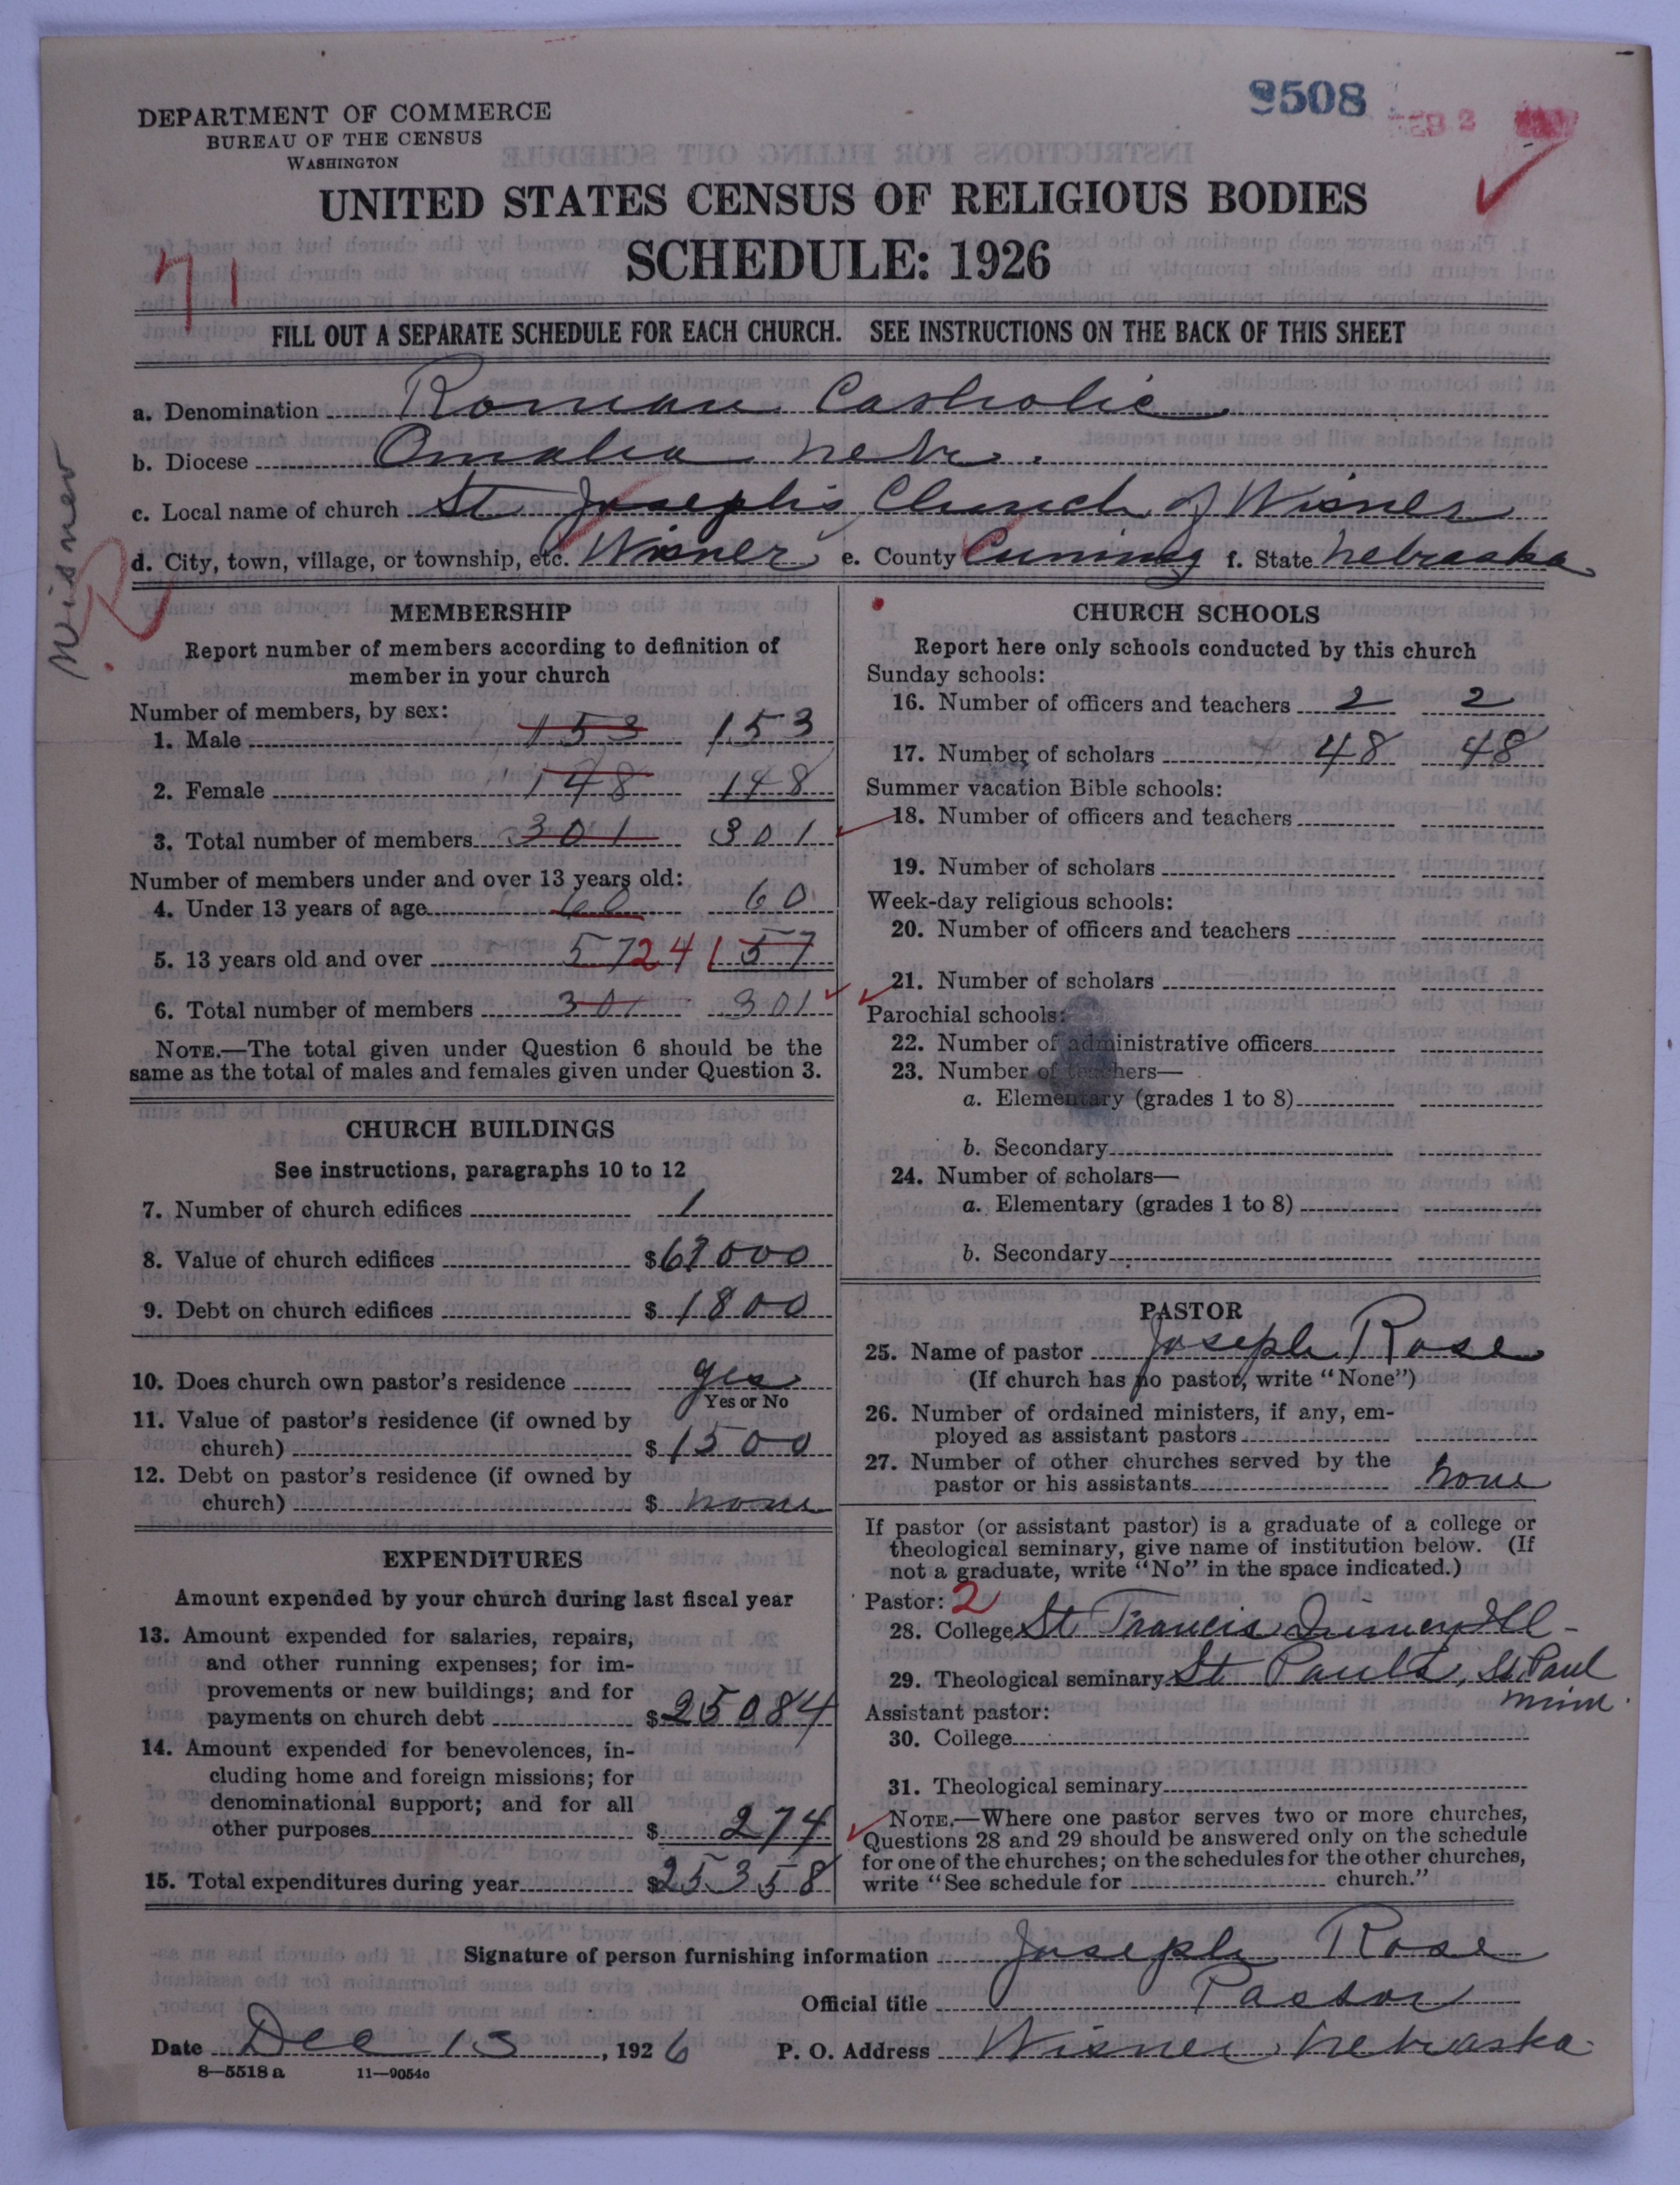 9508
FEB 2
DEPARTMENT OF COMMERCE
BUREAU OF THE CENSUS
WASHINGTON
UNITED STATES CENSUS OF RELIGIOUS BODIES
SCHEDULE: 1926
71
FILL OUT A SEPARATE SCHEDULE FOR EACH CHURCH. SEE INSTRUCTIONS ON THE BACK OF THIS SHEET
a. Denomination Roman Catholic
b. Diocese Omaha Nebr.
c. Local name of church St Joseph's Church of Wisner
d. City, town, village, or township, etc. Wisner e. County Cuming f. State Nebraska
Wisner
R
MEMBERSHIP
Report number of members according to definition of
member in your church
Number of members, by sex:
1. Male 153 153
2. Female 148 148
3. Total number of members 301 301
Number of members under and over 13 years old:
4. Under 13 years of age 60 60
5. 13 years old and over 57 241 57
6. Total number of members 301 301
NOTE.—The total given under Question 6 should be the
same as the total of males and females given under Question 3.
CHURCH BUILDINGS
See instructions, paragraphs 10 to 12
7. Number of church edifices 1
8. Value of church edifices $
9. Debt on church edifices $ 1800
10. Does church own pastor's residence yes
Yes or No
11. Value of pastor's residence (if owned by
church) $ 1500
12. Debt on pastor's residence (if owned by
church) $ none
EXPENDITURES
Amount expended by your church during last fiscal year
13. Amount expended for salaries, repairs,
and other running expenses; for im-
provements or new buildings; and for
payments on church debt $ 25084
14. Amount expended for benevolences, in-
cluding home and foreign missions; for
denominational support; and for all
other purposes $ 274
15. Total expenditures during year $ 25358
CHURCH SCHOOLS
Report here only schools conducted by this church
Sunday schools:
16. Number of officers and teachers 2 2
17. Number of scholars 48 48
Summer vacation Bible schools:
18. Number of officers and teachers
19. Number of scholars
Week-day religious schools:
20. Number of officers and teachers
21. Number of scholars
Parochial schools:
22. Number of administrative officers
23. Number of teachers—
a. Elementary (grades 1 to 8)
b. Secondary
24. Number of scholars—
a. Elementary (grades 1 to 8)
b. Secondary
PASTOR
25. Name of pastor Joseph Rose
(If church has no pastor, write "None")
26. Number of ordained ministers, if any, em-
ployed as assistant pastors
27. Number of other churches served by the
pastor or his assistants none
If pastor (or assistant pastor) is a graduate of a college or
theological seminary, give name of institution below. (If
not a graduate, write "No" in the space indicated.)
Pastor: 2
28. College St Francis Quincy Ill-
29. Theological seminary St Pauls, St Paul
Minn.
Assistant pastor:
30. College
31. Theological seminary
NOTE.—Where one pastor serves two or more churches,
Questions 28 and 29 should be answered only on the schedule
for one of the churches; on the schedules for the other churches,
write "See schedule for church."
Signature of person furnishing information Joseph Rose
Official title Pastor
Date Dec 13, 1926 P. O. Address Wisner Nebraska
8—5518 a 11—9054c